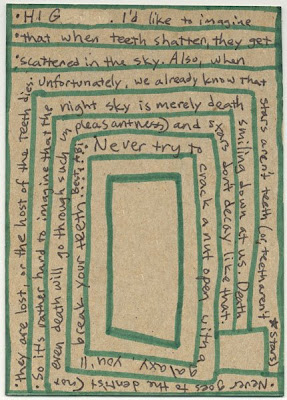 • HI G . I'd like to imagine
• that when teeth shatter, they get
• scattered in the sky. Also, when
• they are lost, or the host of the teeth dies.
Unfortunately, we already know that
stars aren't teeth (or, teeth aren't
* stars)
• So it's rather hard to imagine that the
night sky is merely death
smiling down at us. Death
• Never goes to the dentist (nor
even death will go through such un
pleasantness) and
stars dont decay like that.
Never try to
crack a nut open with a
galaxy. you'll
break your teeth. Best,